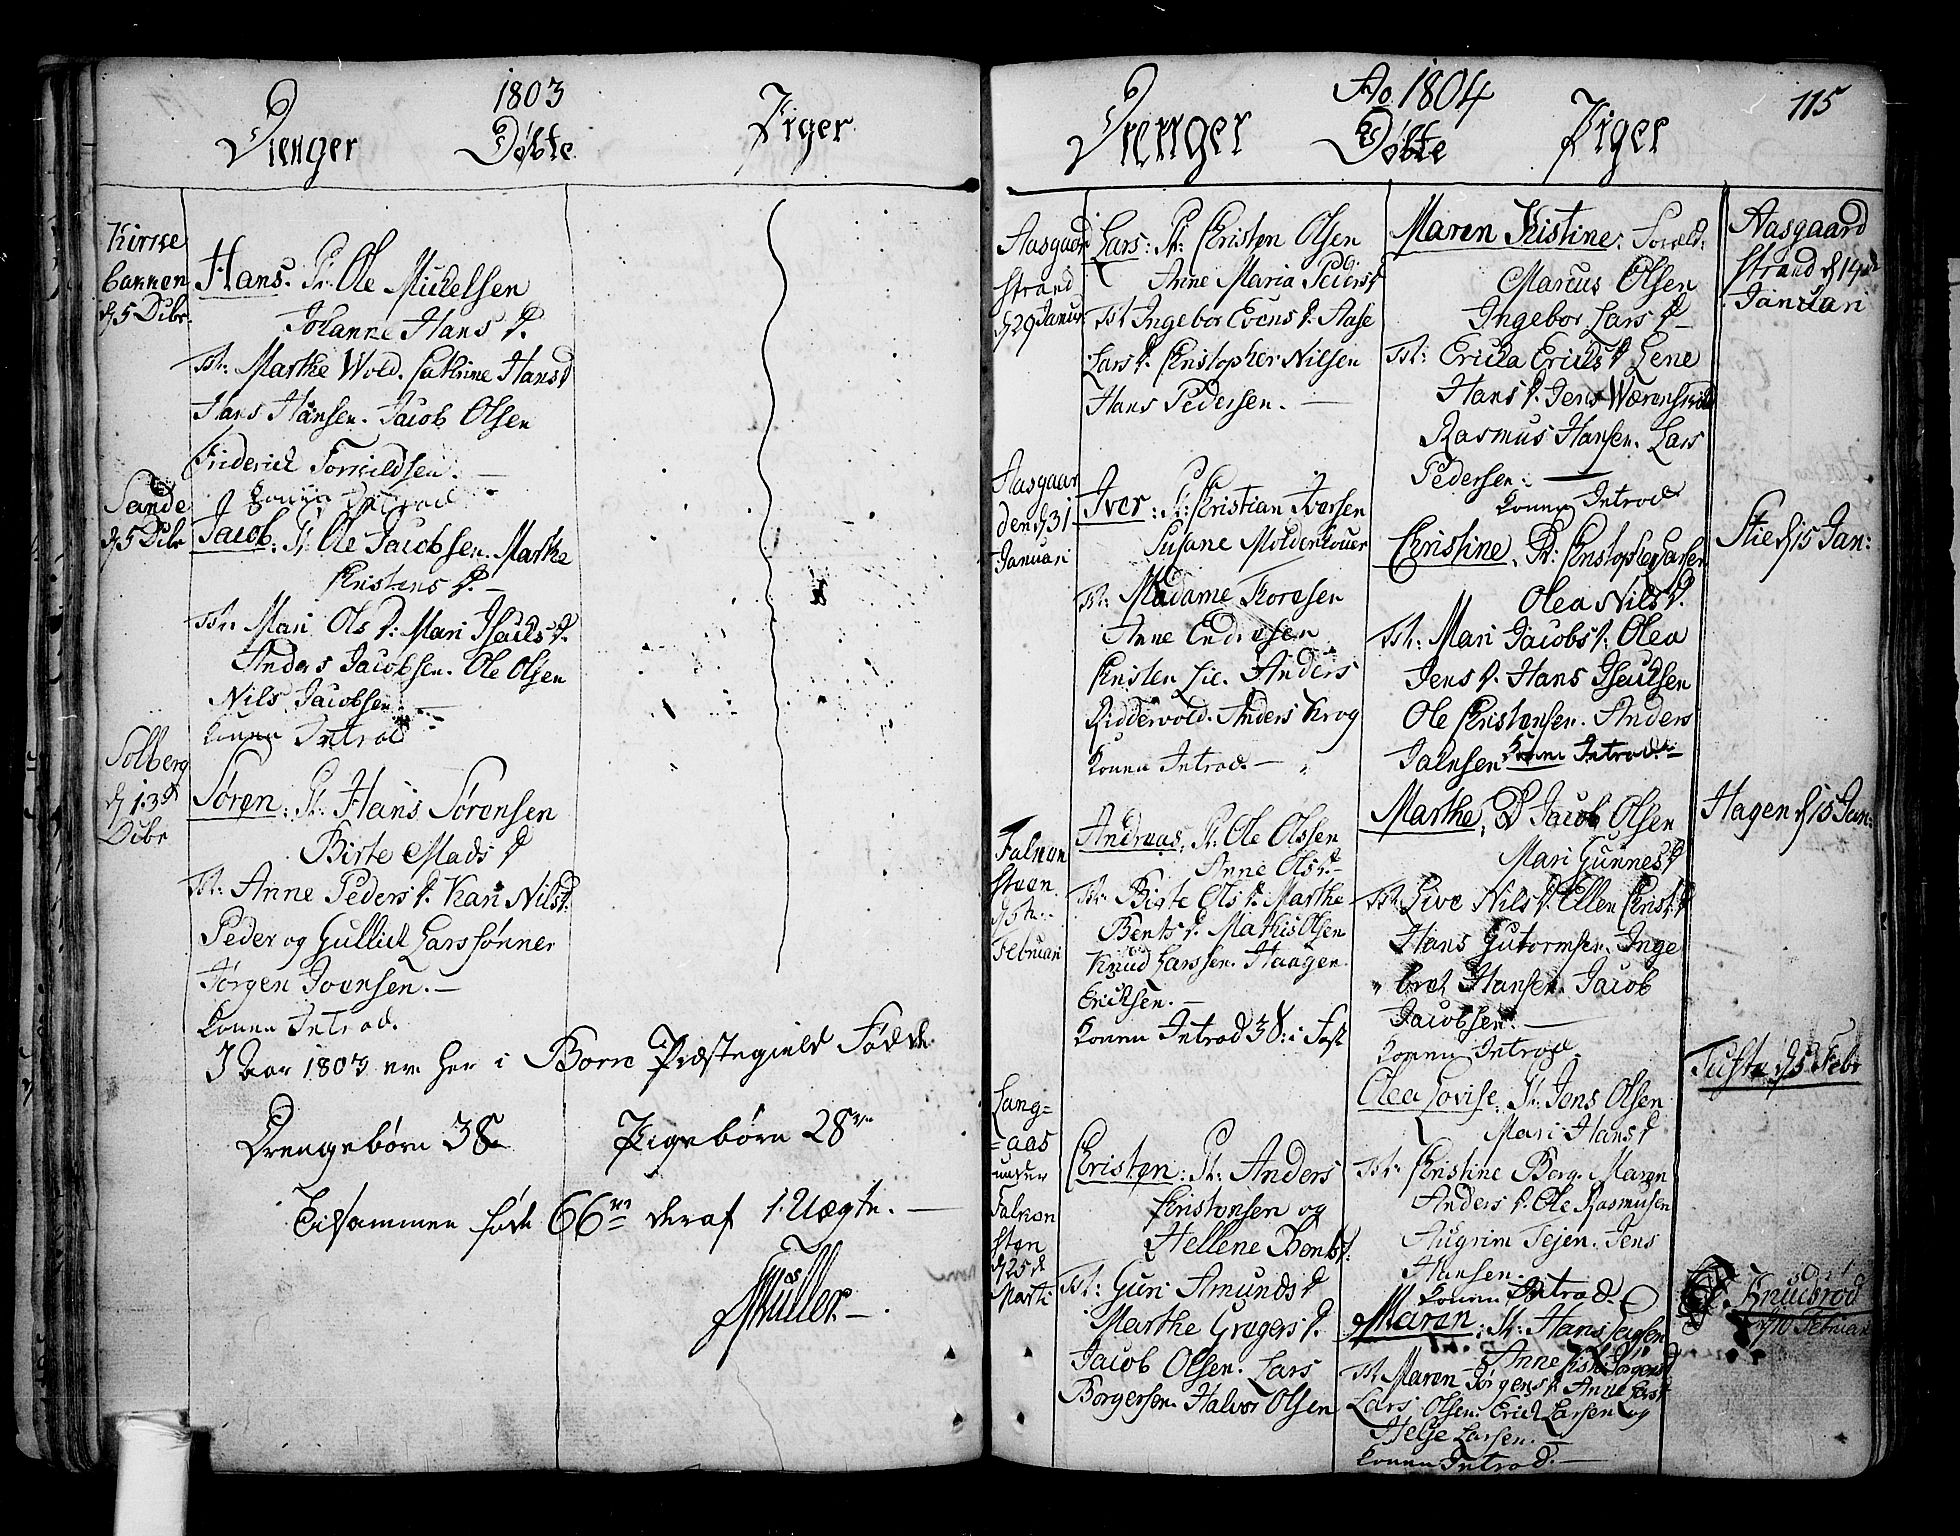 1803
Drenger Døbte Piger
Kirke
backen
d 5 Dcbr.
Hans. Fr. Ole Mickelsen
Johanne Hans D.
Tst: Marthe Wold. Cathrine Hansd
Hans Hansen. Jacob Olsen
Friderick Torkildsen. —
konen Introd
Sande
d 5 Dcbr
Jacob: Fr. Ole Jacobsen. Marthe
Christens D. —
Tst: Mari Ols D: Mari Isacks D.
Anders Jacobsen. Ole Olsen
Nils Jacobsen. —
konen Introd
Solberg
d 13d
Dcbr
Søren: Fr. Hans Sørensen
Birte Mads D
Tst: Anne Peders D. Kari Nilsd.
Peder og Gullick Larssønner
Jørgen Ivensen. —
konen Introd.
I Aar 1803 ere her i Borre Præstegield Fødde
Drengebørn 38 Pigebørn 28
Tilsammen føde 66 deraf 1. Uægte. —
Müller. —
Ao 1804
115
Drenger Døbte Piger
Aasgaard
strand
d 29 Januar
Lars: Fr: Christen Olsen
Anne Maria Pedersd
Tst Ingebor Evens D. Aase
Lars D. Christopher Nilsen
Hans Pedersen. —
Aasgaar
den d 31
Januari
Iver: Fr: Christian Iversen
Susane Moldenhouer
Tst: Madame Thoresen
Anne Endresen
Christen Lie. Anders
Riddervold. Anders Krog
konen Introd. —
Falken
steen
d 5te
Februari
Andreas: Fr: Ole Olssen
Anne Olsd. —
Tst: Birte Ols D. Marthe
Bents D. Mathis Olsen
Knud Larssen. Haagen
Ericksen. —
konen Introd 3 S: i Fast
Lang=
=aas
under
Falken
sten
d 25de
Marti
Christen: Fr: Anders
Christensen og
Hellene Bentsd:
Tst: Guri Amundsd
Marthe Gregers D.
Jacob Olsen. Lars
Borgersen. Halvor Olsen
Maren Kistine: Foræld:
Marcus Olsen
Ingebor Lars D —
Tst: Ericka Ericks D Lene
Hans D. Jens Wærenskiold
Rasmus Hansen. Lars
Pedersen. —
konen Introd
Christine, Fr: Christopher Larsen
Olea Nils D.
Tst: Mari Jacobs D. Olea
Jens D. Hans Isacksen
Ole Christensen. Anders
Jalnsen konen Introd. —
Marthe, Fr Jacob Olsen
Mari Gunnesd
Tst Live Nils D. Ellen Christ. D
Hans Gutormsen. Inge
bret Hansen. Jacob
Jacobsen. —
konen Introd.
Olea Lovise, Fr: Jens Olsen
Mari Hansd
Tst: Christine Berg. Maren
Anders D. Ole Rasmusen
Augrim Tejen. Jens
Hansen.
konen Introd.
Maren: Fr: Hans
Anne Jørgensd
Tst Maren Jørgens D. Anne Larsd
Lars Olsen. Erick Larsen og
Helje Larsen. —
konen Introd. —
Aasgaard
strand d 14de
Januari
Stie d 15 Jan:
Hagen d 15 Jan:
Tufte d 5 Febr
Knudsrød
d 10 Februar